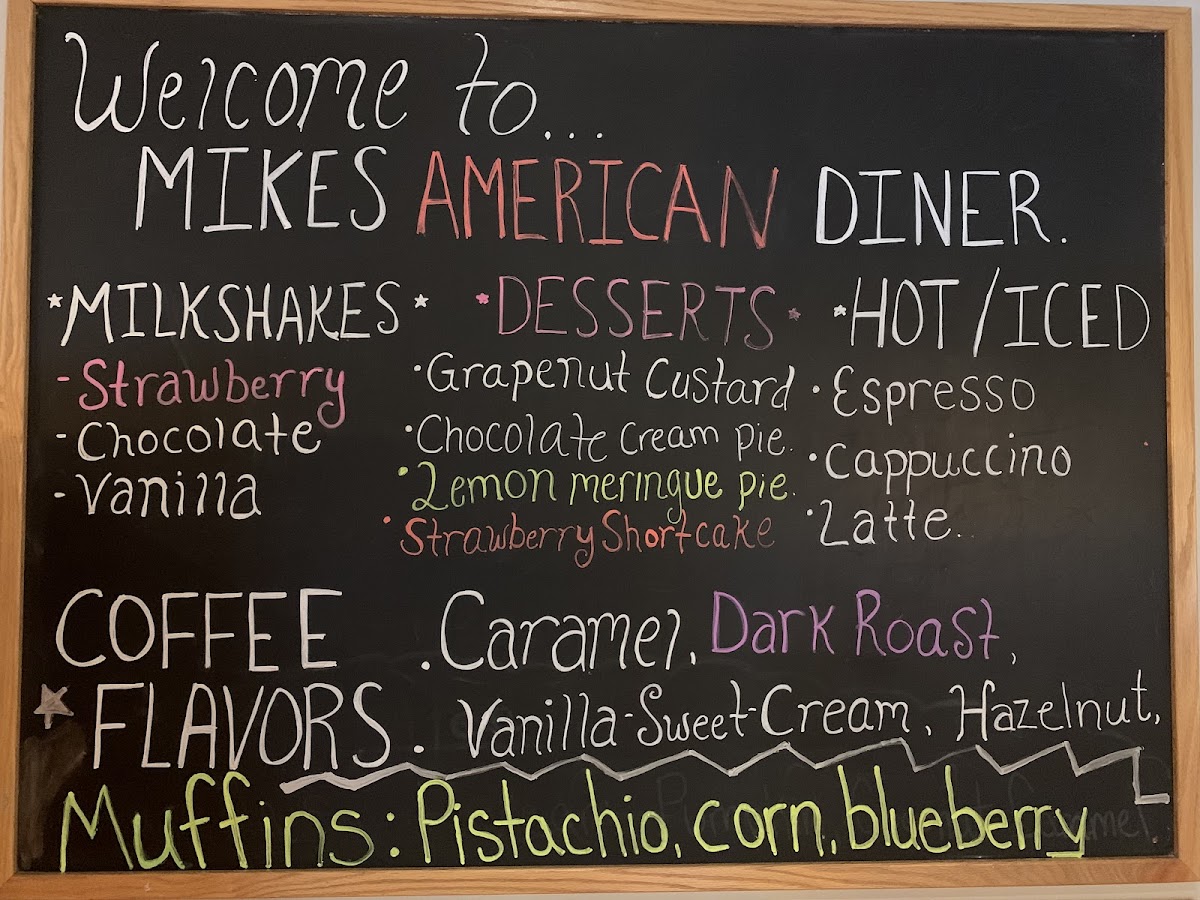 Welcome to...
MIKES AMERICAN DINER.
*MILKSHAKES*
- Strawberry
- Chocolate
- Vanilla
*DESSERTS*
· Grapenut Custard
· Chocolate Cream pie.
· Lemon meringue pie.
· Strawberry Shortcake
*HOT/ICED
· Espresso
· Cappuccino
· Latte..
COFFEE . Caramel, Dark Roast,
★ FLAVORS . Vanilla-Sweet-Cream, Hazelnut,
Muffins: Pistachio, corn, blueberry